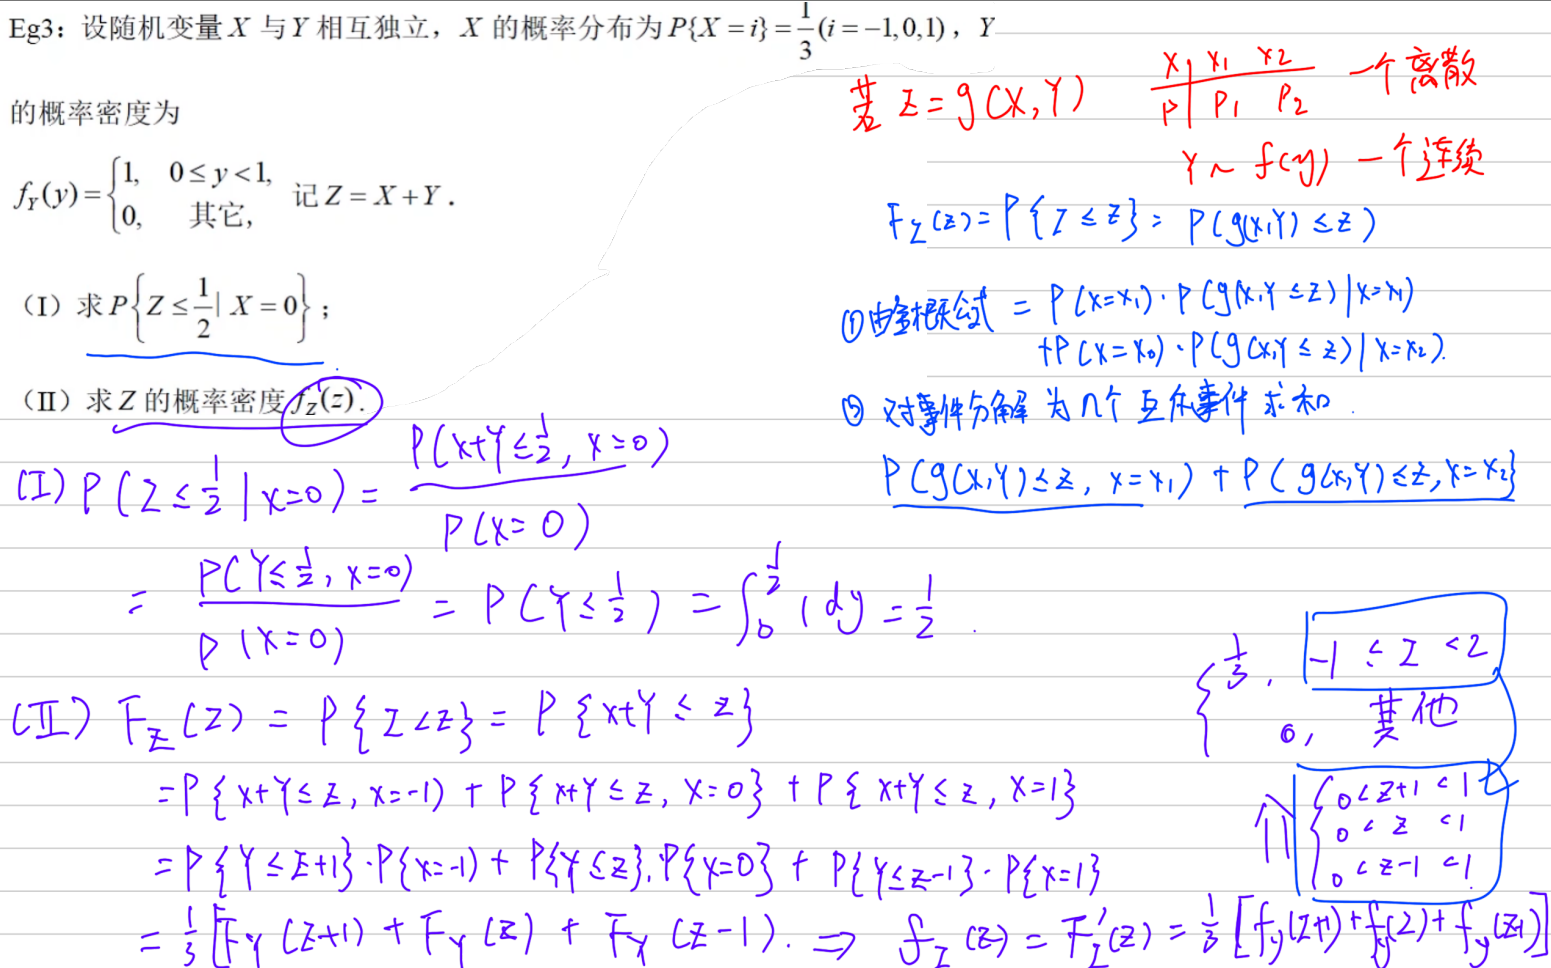 Eg3：设随机变量 X 与 Y 相互独立，X 的概率分布为 P{X = i} = 1/3 (i = −1, 0, 1)，Y
的概率密度为
f_Y(y) = { 1, 0 ≤ y < 1,
0, 其它,
记 Z = X + Y .
（I）求 P{Z ≤ 1/2 | X = 0}；
（II）求 Z 的概率密度 f_Z(z) .
若 Z = g(X, Y)
X | x1 x2
P | P1 P2
一个离散
Y ~ f(y) 一个连续
F_Z(z) = P{Z ≤ z} = P(g(X,Y) ≤ z)
① 由全概公式 = P(X=x1)·P(g(X,Y ≤ z) | X=x1)
+P(X=x0)·P(g(X,Y ≤ z) | X=x2).
② 对事件分解为 n个互斥事件求和.
P(g(X,Y) ≤ z, X=x1) + P(g(X,Y) ≤ z, X=x2}
(I) P(Z ≤ 1/2 | X=0) = P(X+Y ≤ 1/2, X=0) / P(X=0)
= P(Y ≤ 1/2, X=0) / P(X=0) = P(Y ≤ 1/2) = ∫_0^{1/2} 1 dy = 1/2 .
(II) F_Z(Z) = P{Z < z} = P{X+Y ≤ z}
= P{X+Y ≤ z, X=-1) + P{X+Y ≤ z, X=0} + P{X+Y ≤ z, X=1}
= P{Y ≤ z+1}·P{X=-1) + P{Y ≤ z}.P{X=0} + P{Y ≤ z-1}·P{X=1}
= 1/3 [F_Y(Z+1) + F_Y(Z) + F_Y(Z-1). ⇒ f_Z(z) = F_Z'(z) = 1/3 [f_y(Z+1) + f_y(Z) + f_y(Z-1)]
{ 1/3, -1 ≤ Z < 2
0, 其他
⇑ { 0 < z+1 < 1
0 < z < 1
0 < z-1 < 1